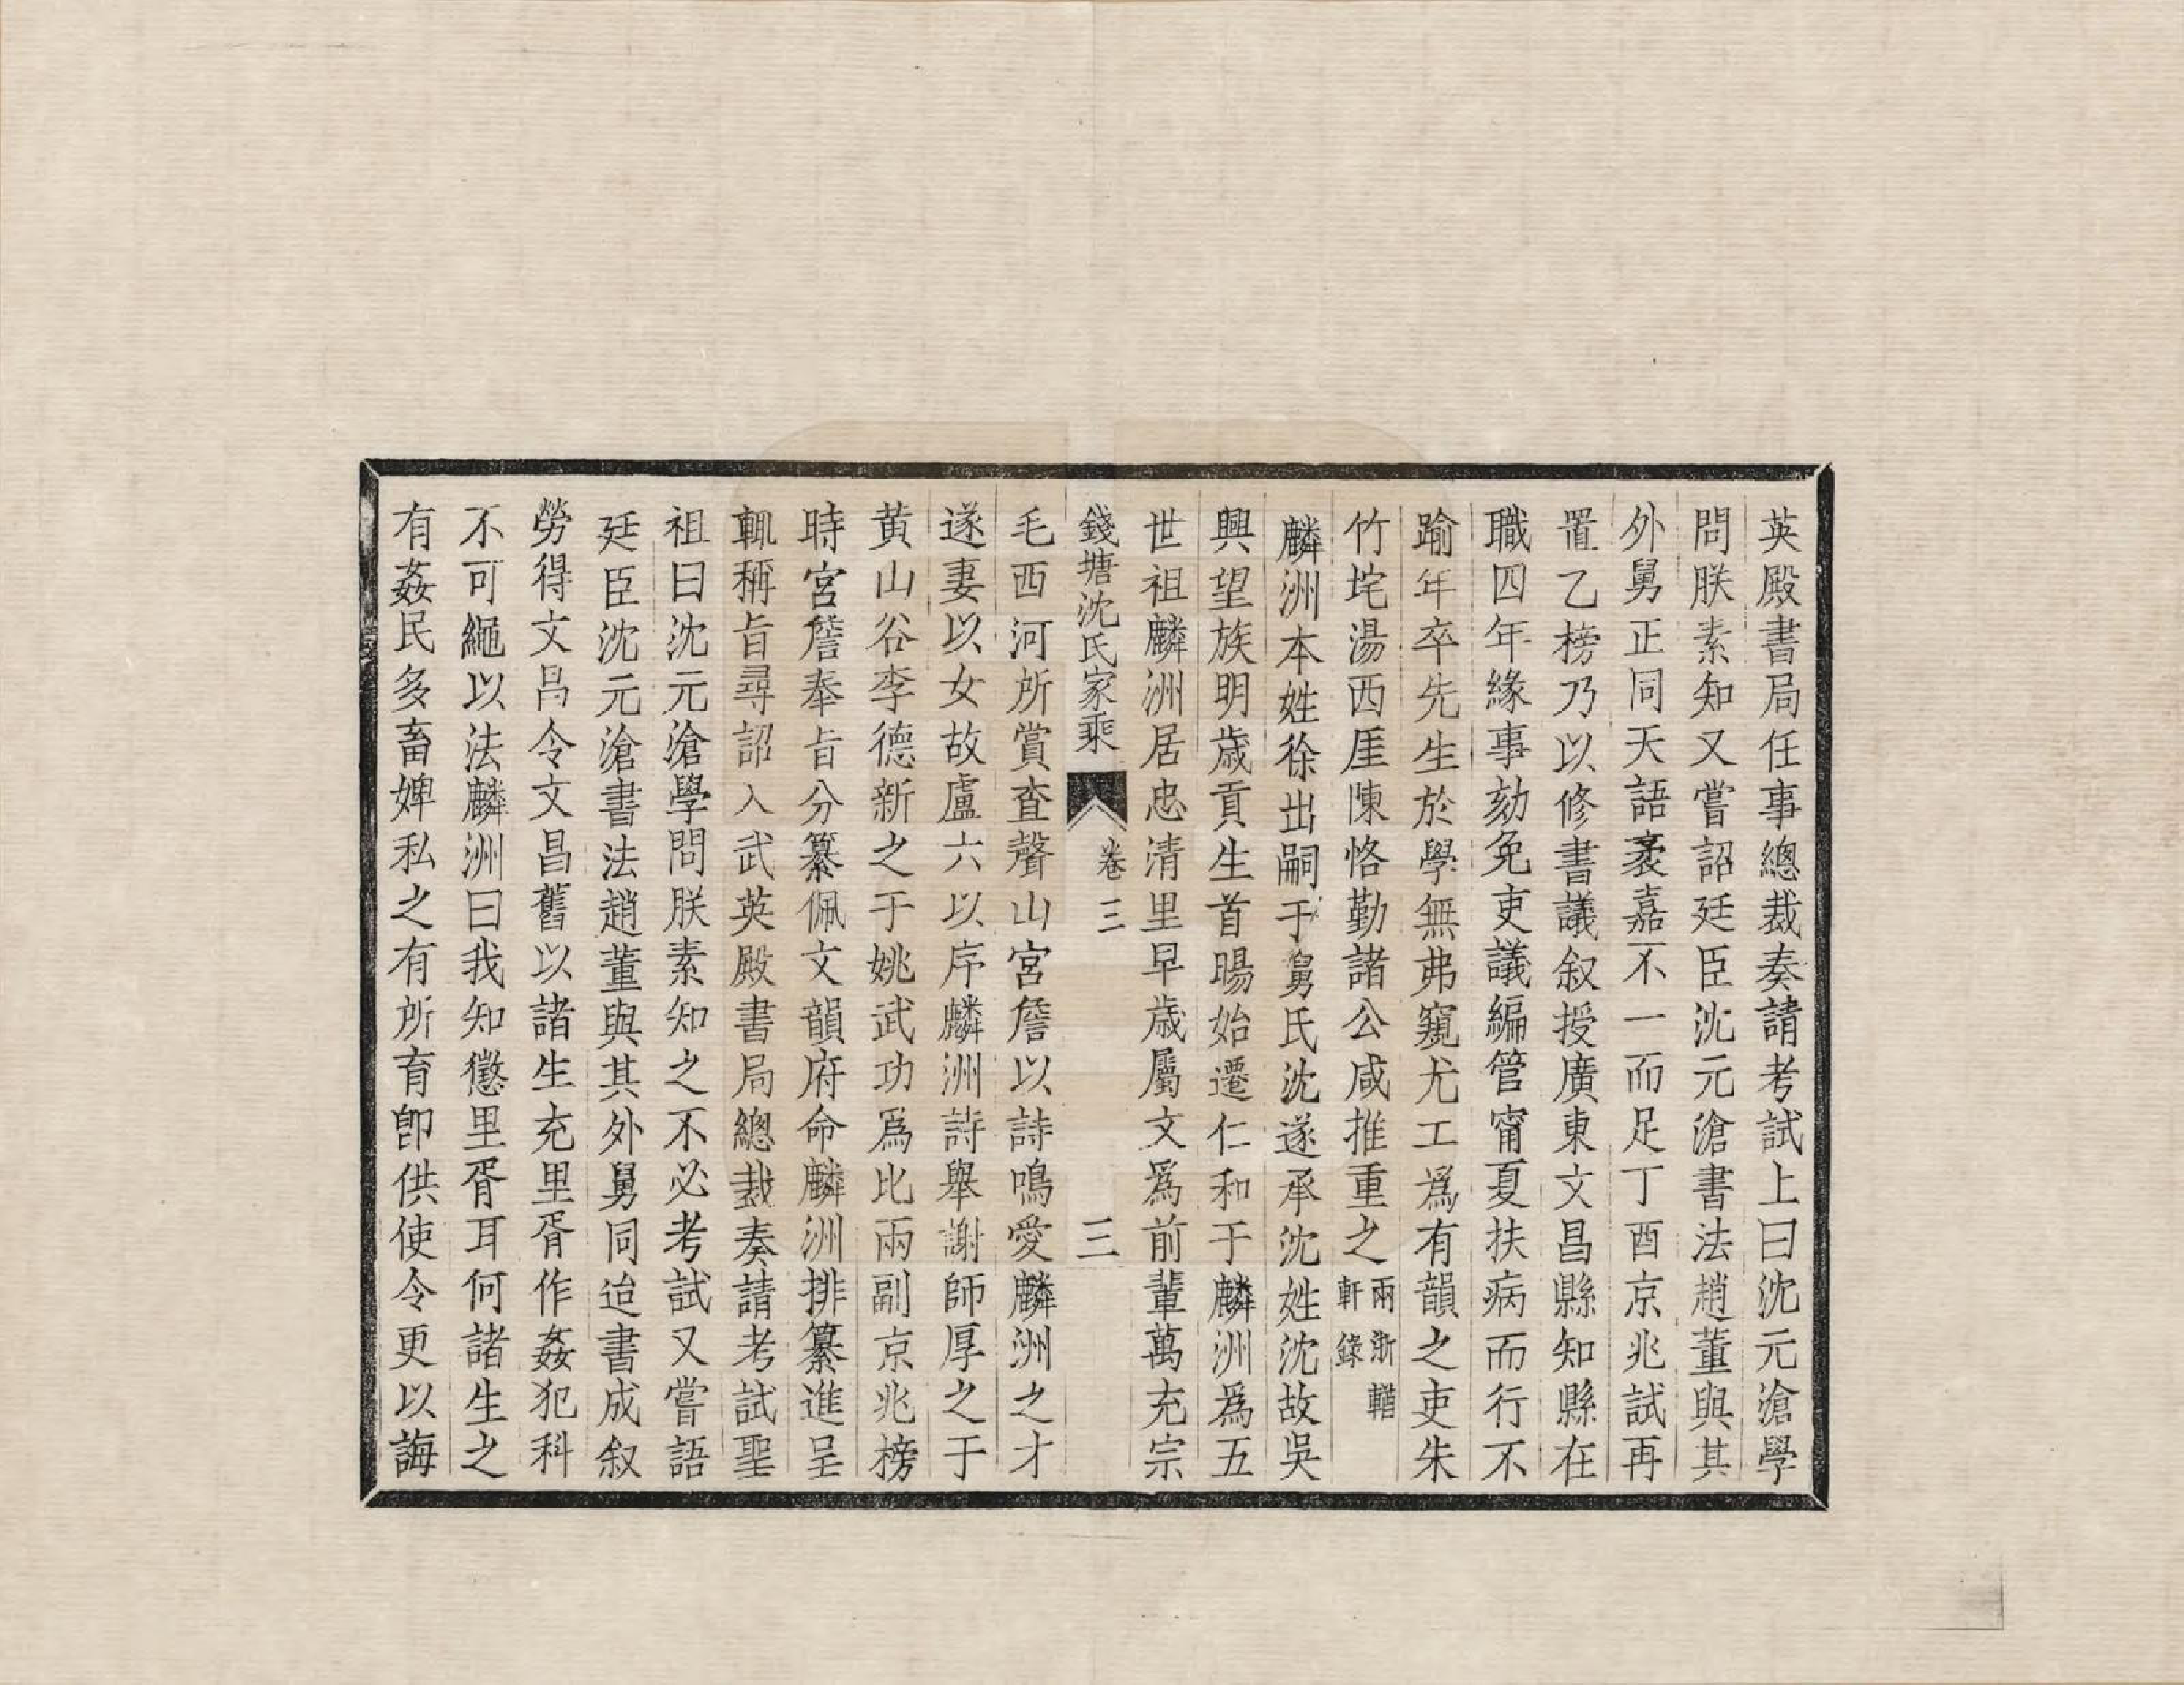 英殿書局任事總裁奏請考試上曰沈元滄學
問朕素知又嘗詔廷臣沈元滄書法趙董與其
外舅正同天語袤嘉不一而足丁酉京兆試再
置乙榜乃以修書議叙授廣東文昌縣知縣在
職四年緣事劾免吏議編管甯夏扶病而行不
踰年卒先生於學無弗窺尤工爲有韻之吏朱
竹垞湯西厓陳恪勤諸公咸推重之兩浙輶軒錄
麟洲本姓徐出嗣于舅氏沈遂承沈姓沈故吳
興望族明歲貢生首暘始遷仁和于麟洲爲五
世祖麟洲居忠清里早歲屬文爲前輩萬充宗
錢塘沈氏家乘 卷三 三
毛西河所賞查聲山宮詹以詩鳴愛麟洲之才
遂妻以女故盧六以序麟洲詩舉謝師厚之于
黃山谷李德新之于姚武功爲比兩副京兆榜
時宮詹奉旨分纂佩文韻府命麟洲排纂進呈
輒稱旨尋詔入武英殿書局總裁奏請考試聖
祖曰沈元滄學問朕素知之不必考試又嘗語
廷臣沈元滄書法趙董與其外舅同迨書成叙
勞得文昌令文昌舊以諸生充里胥作姦犯科
不可繩以法麟洲曰我知懲里胥耳何諸生之
有姦民多畜婢私之有所育卽供使令更以誨